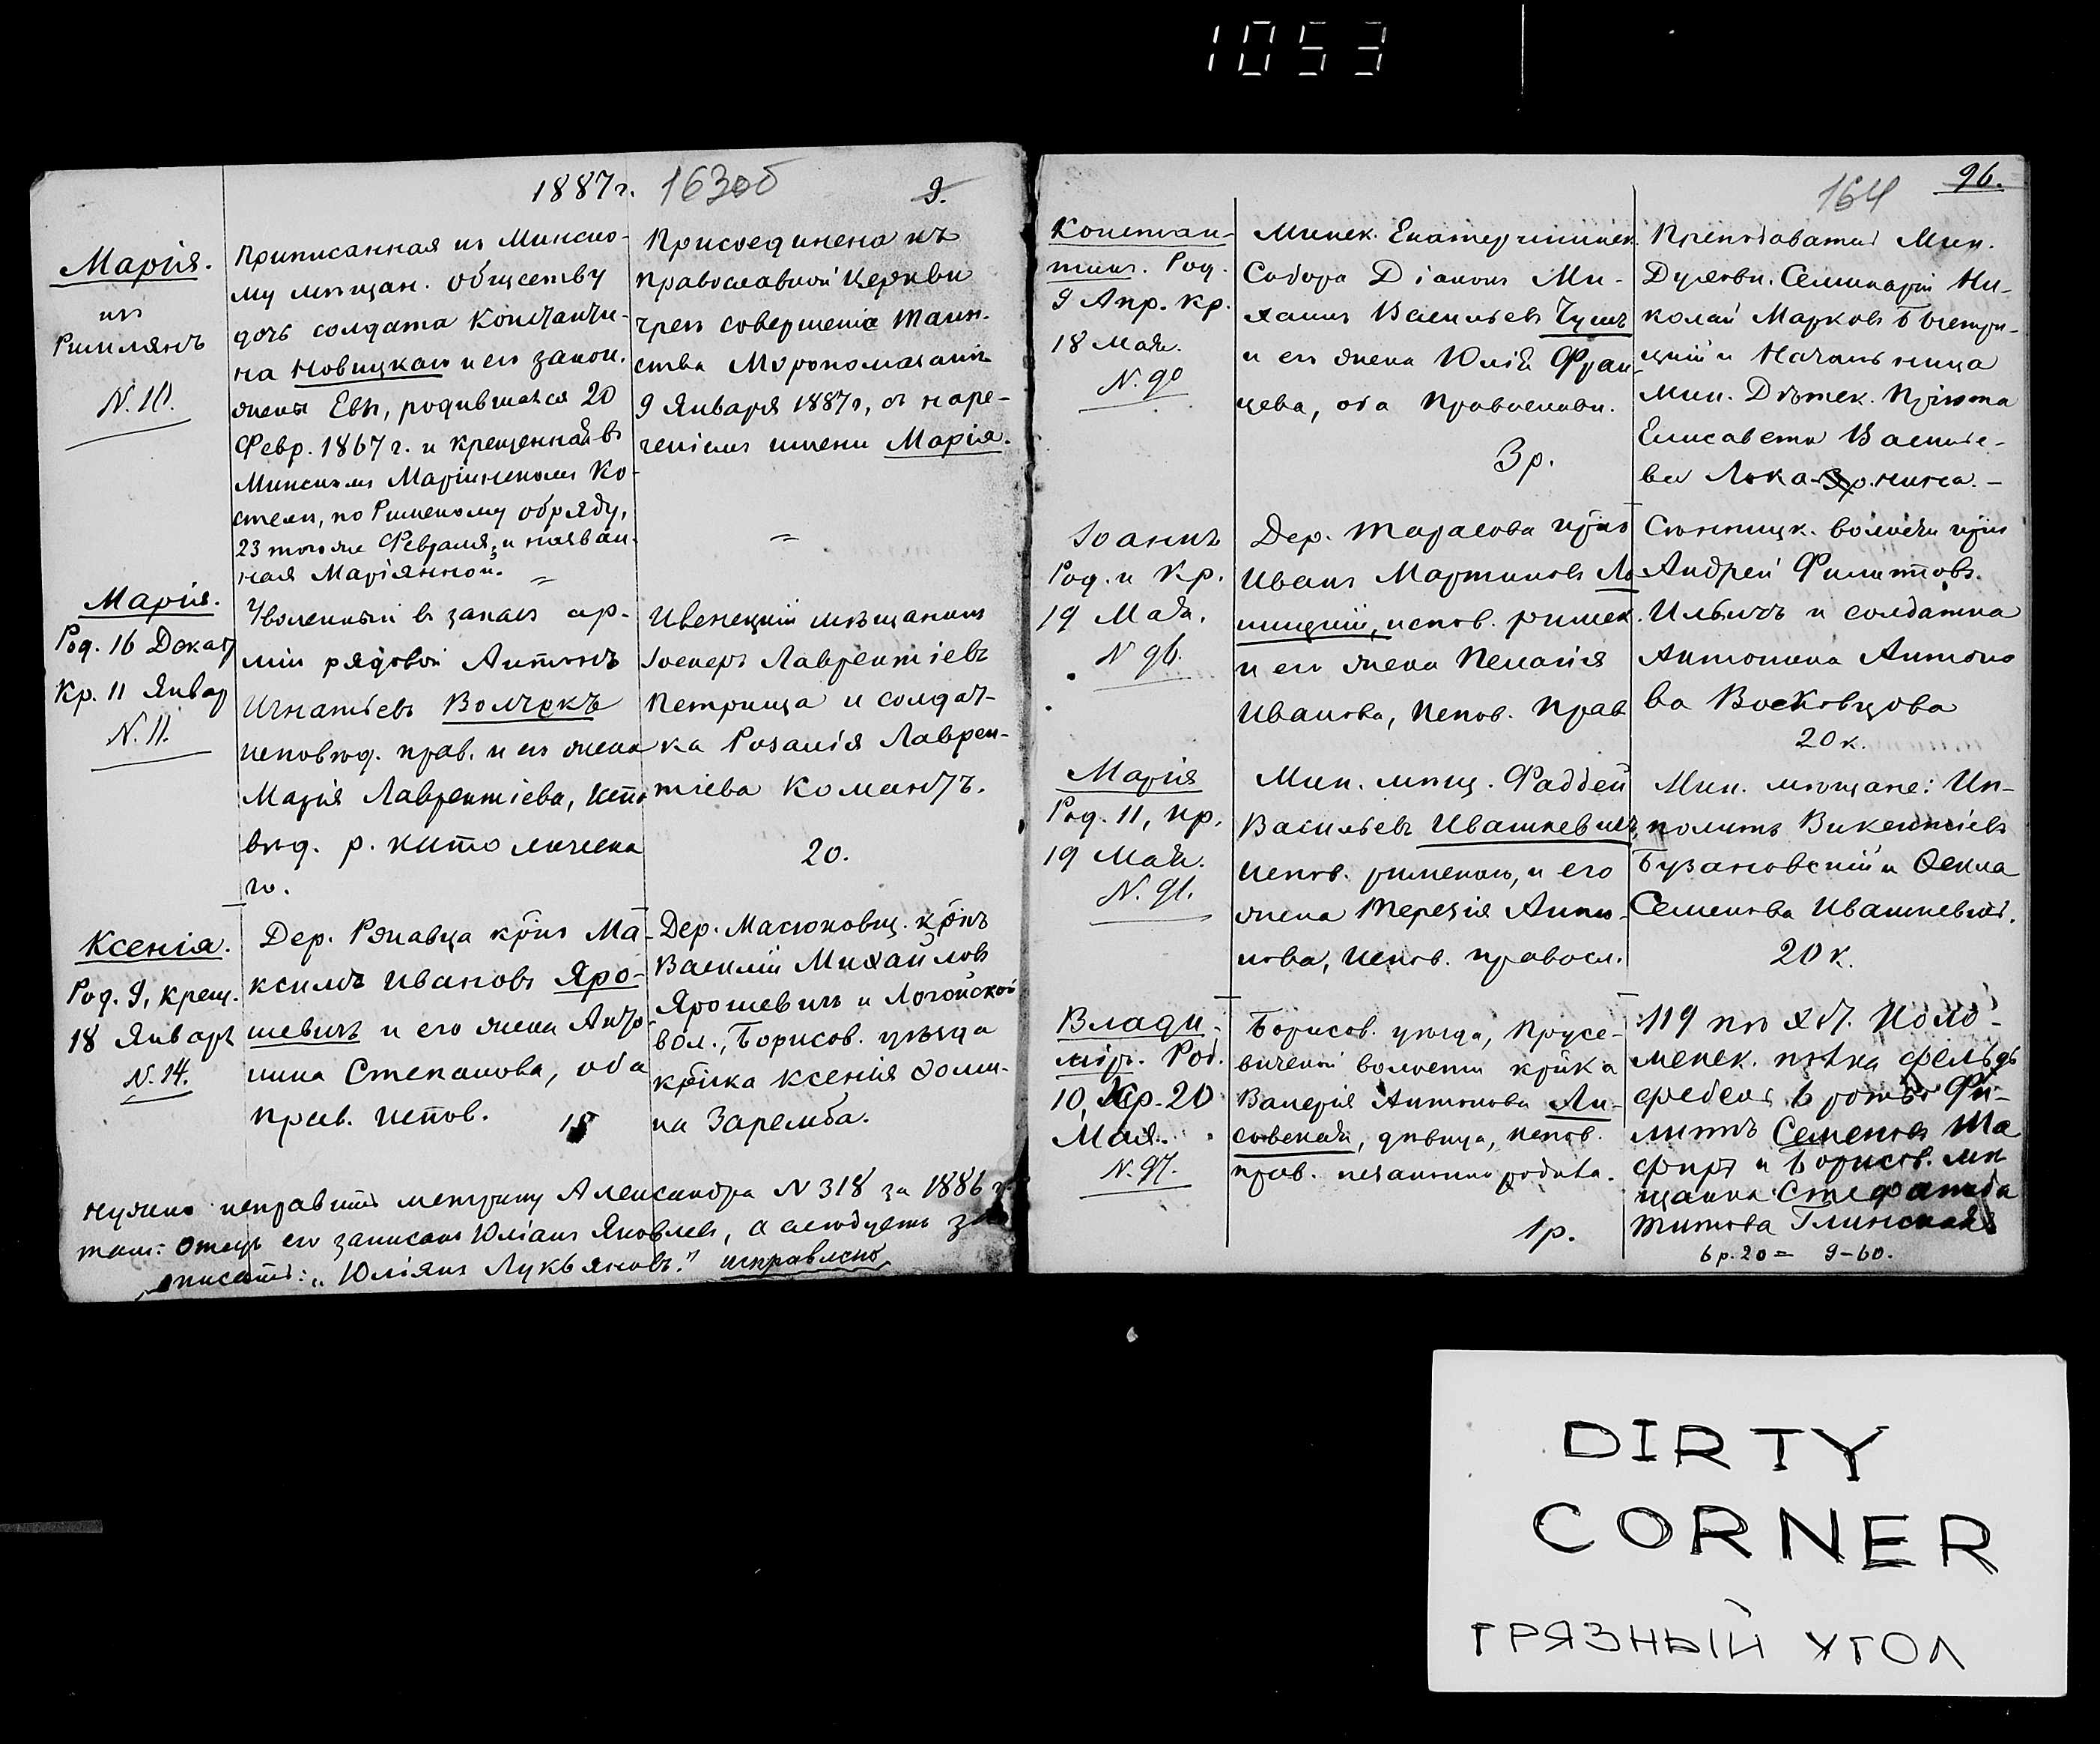 1053
1887г. 163об 9.
Марія.
изъ
Римлянъ
N. 10.
Приписанная къ Минско-
му мѣщан. обществу
дочь солдата Константи-
на Новицкаго и его закон.
жены Евы, родившаяся 20
Февр. 1867 г. и крещенная въ
Минскомъ Маріинскомъ Ко-
стелѣ, по Римскому обряду,
23 того же Февраля, и назван-
ная Маріянной.
Присоединена къ
Православной Церкви
чрезъ совершеніе Таин-
ства Мѵропомазанія
9 Января 1887г, съ наре-
ченіемъ имени Марія.
Марія.
Род. 16 Декаб
Кр. 11 Январ
N. 11.
Уволенный въ запасъ ар-
міи рядовой Антонъ
Игнатьевъ Волчекъ
исповѣд. прав. и его жена
Марія Лаврентіева, испо
вѣд. р. католическа
го.
Ивенецкій мѣщанинъ
Іосифъ Лаврентіевъ
Петрица и солдат-
ка Розалія Лаврен-
тіева
20.
Ксенія.
Род. 9, крещ.
18 Январ
N. 14.
Дер. Ржавца крінъ Ма-
ксимъ Ивановъ Яро-
шевичъ и его жена Анто
нина Степанова, оба
прав. испов.
Дер. Масюковщ. крінъ
Василій Михайловъ
Ярошевичъ и Логойской
вол., Борисов. уѣзда
крінка Ксенія Ѳоми-
на Заремба.
Нужно исправить метрику Александра N 318 за 1886 г.
тамъ: отецъ его записанъ Юліанъ Яковлевъ, а слѣдуетъ за
писать: „Юліянъ Лукьяновъ." исправлено
164 96.
Констан-
тинъ. Род.
9 Апр. Кр.
18 Мая.
N. 90
Минск. Екатерининск.
Собора Діаконъ Ми-
хаилъ Васильевъ
и его жена Юлія Фран
цева, оба Православн.
3 р.
Преподаватель Мин.
Духовн. Семинаріи Ни-
колай Марковъ
и Начальница
Мин. Дѣтск. Пріюта
Елисавета Василье-
ва
Іоаннъ
Род. и Кр.
19 Мая.
N 96.
Дер. Тарасова крінъ
Иванъ Мартиновъ Ло
, испов. римск.
и его жена Пелагія
Иванова, испов. прав
Сѣнницк. волости крін
Андрей Филиповъ.
Ильичъ и солдатка
Антонина Антоно
ва Восковцова
20 к.
Марія
Род. 11, кр.
19 Мая.
N. 91.
Мин. мѣщ. Фаддей
Васильевъ Ивашкевичъ,
испов. римскаго, и его
жена Терезія Анто-
нова, испов. правосл.
Мин. мѣщане: Ип-
политъ Викентіевъ
Бузановскій и Ѳекла
Семенова Ивашкевичъ.
20 к.
Влади-
міръ. Род.
10, Кр. 20
Мая.
N. 97.
Борисов. уѣзда,
вичской волости крінка
Валерія Антонова Ли-
совская, дѣвица, испов.
прав. незаконно родила.
1 р.
119 пѣх. Коло-
менск. полка фельд
фебель 6 роты Фи-
липпъ Семеновъ Ша
и Борисов. мѣ
щанка Стефанида
Титова Глинская
6 р. 20 = 9-60.
DIRTY
CORNER
ГРЯЗНЫЙ УГОЛ